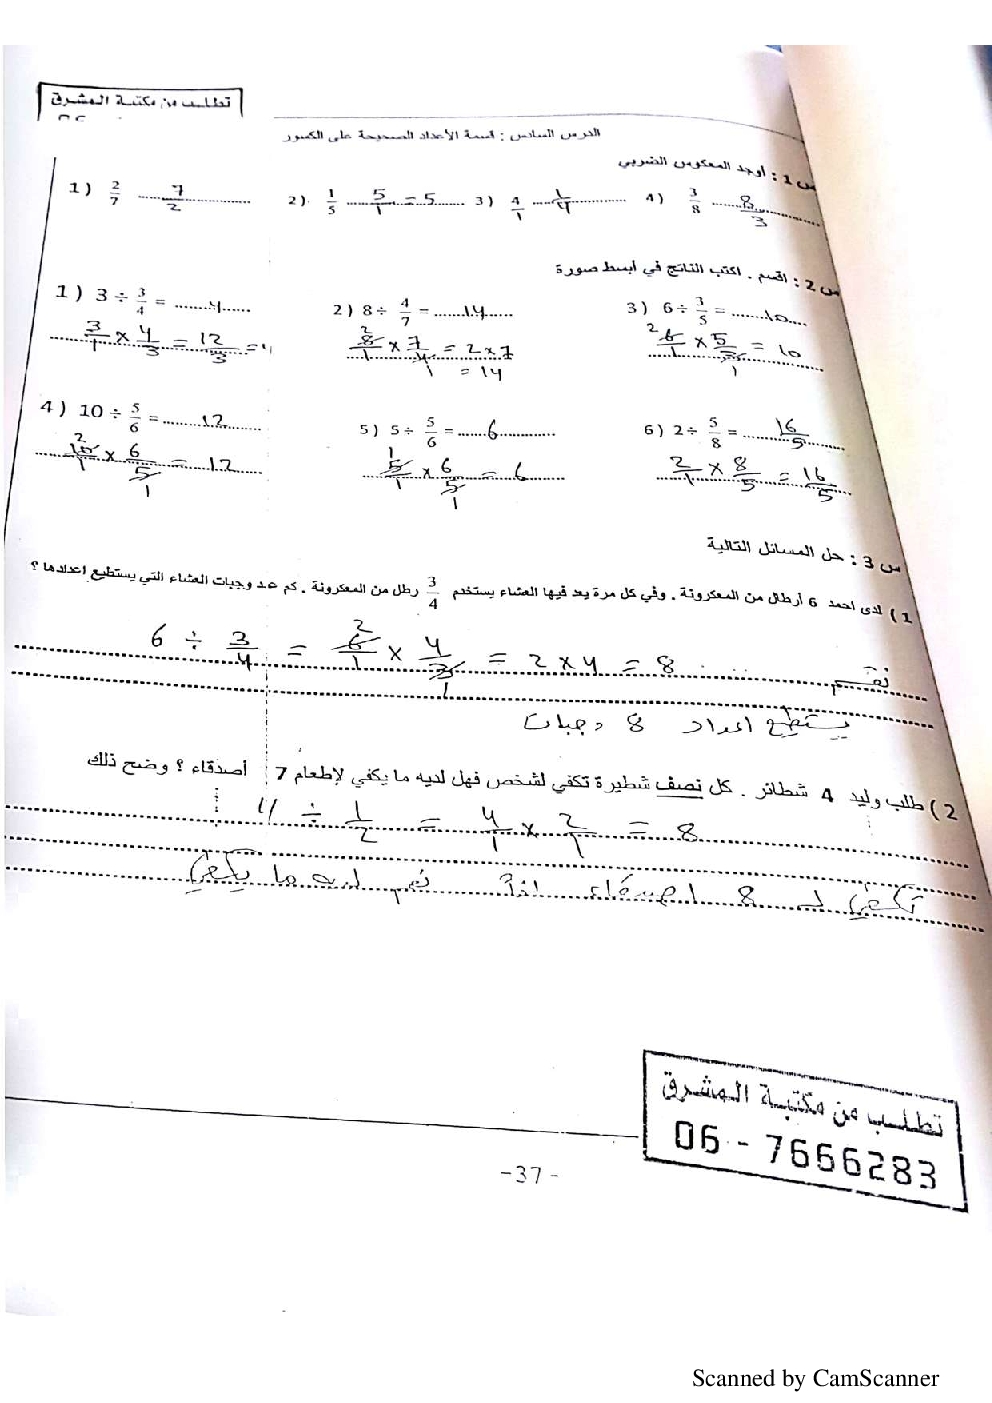 تطلب من مكتبة المشرق
الدرس السادس : قسمة الأعداد الصحيحة على الكسور
س 1 : أوجد المعكوس الضربي
1 ) 2/7 ........ 7/2 ........ 2 ) 1/5 ........ 5/1 = 5 ........ 3 ) 4/1 ........ 1/4 ........ 4 ) 3/8 ........ 8/3 ........
س 2 : اقسم . اكتب الناتج في أبسط صورة
1 ) 3 ÷ 3/4 = ........ 4 ........ 2 ) 8 ÷ 4/7 = ........ 14 ........ 3 ) 6 ÷ 3/5 = ........ 10 ........
3/1 × 4/3 = 12/3 = 4 2 8/1 × 7/4 = 2 × 7 2 6/1 × 5/3 = 10
1 = 14 1
4 ) 10 ÷ 5/6 = ........ 12 ........ 5 ) 5 ÷ 5/6 = ........ 6 ........ 6 ) 2 ÷ 5/8 = ........ 16/5 ........
2 10/1 × 6/5 = 12 1 5/1 × 6/5 = 6 2/1 × 8/5 = 16/5
1 1
س 3 : حل المسائل التالية
1 ) لدى احمد 6 أرطال من المعكرونة . وفي كل مرة يعد فيها العشاء يستخدم 3/4 رطل من المعكرونة . كم عدد وجبات العشاء التي يستطيع اعدادها ؟
نقسم 6 ÷ 3/4 = 2 6/1 × 4/3 = 2 × 4 = 8
1
يستطيع اعداد 8 وجبات
2 ) طلب وليد 4 شطائر . كل نصف شطيرة تكفي لشخص فهل لديه ما يكفي لإطعام 7 أصدقاء ؟ وضح ذلك
4 ÷ 1/2 = 4/1 × 2/1 = 8
تكفي لـ 8 اصدقاء اذاً نعم لديه ما يكفي
تطلب من مكتبة المشرق
06 - 7666283
-37-
Scanned by CamScanner